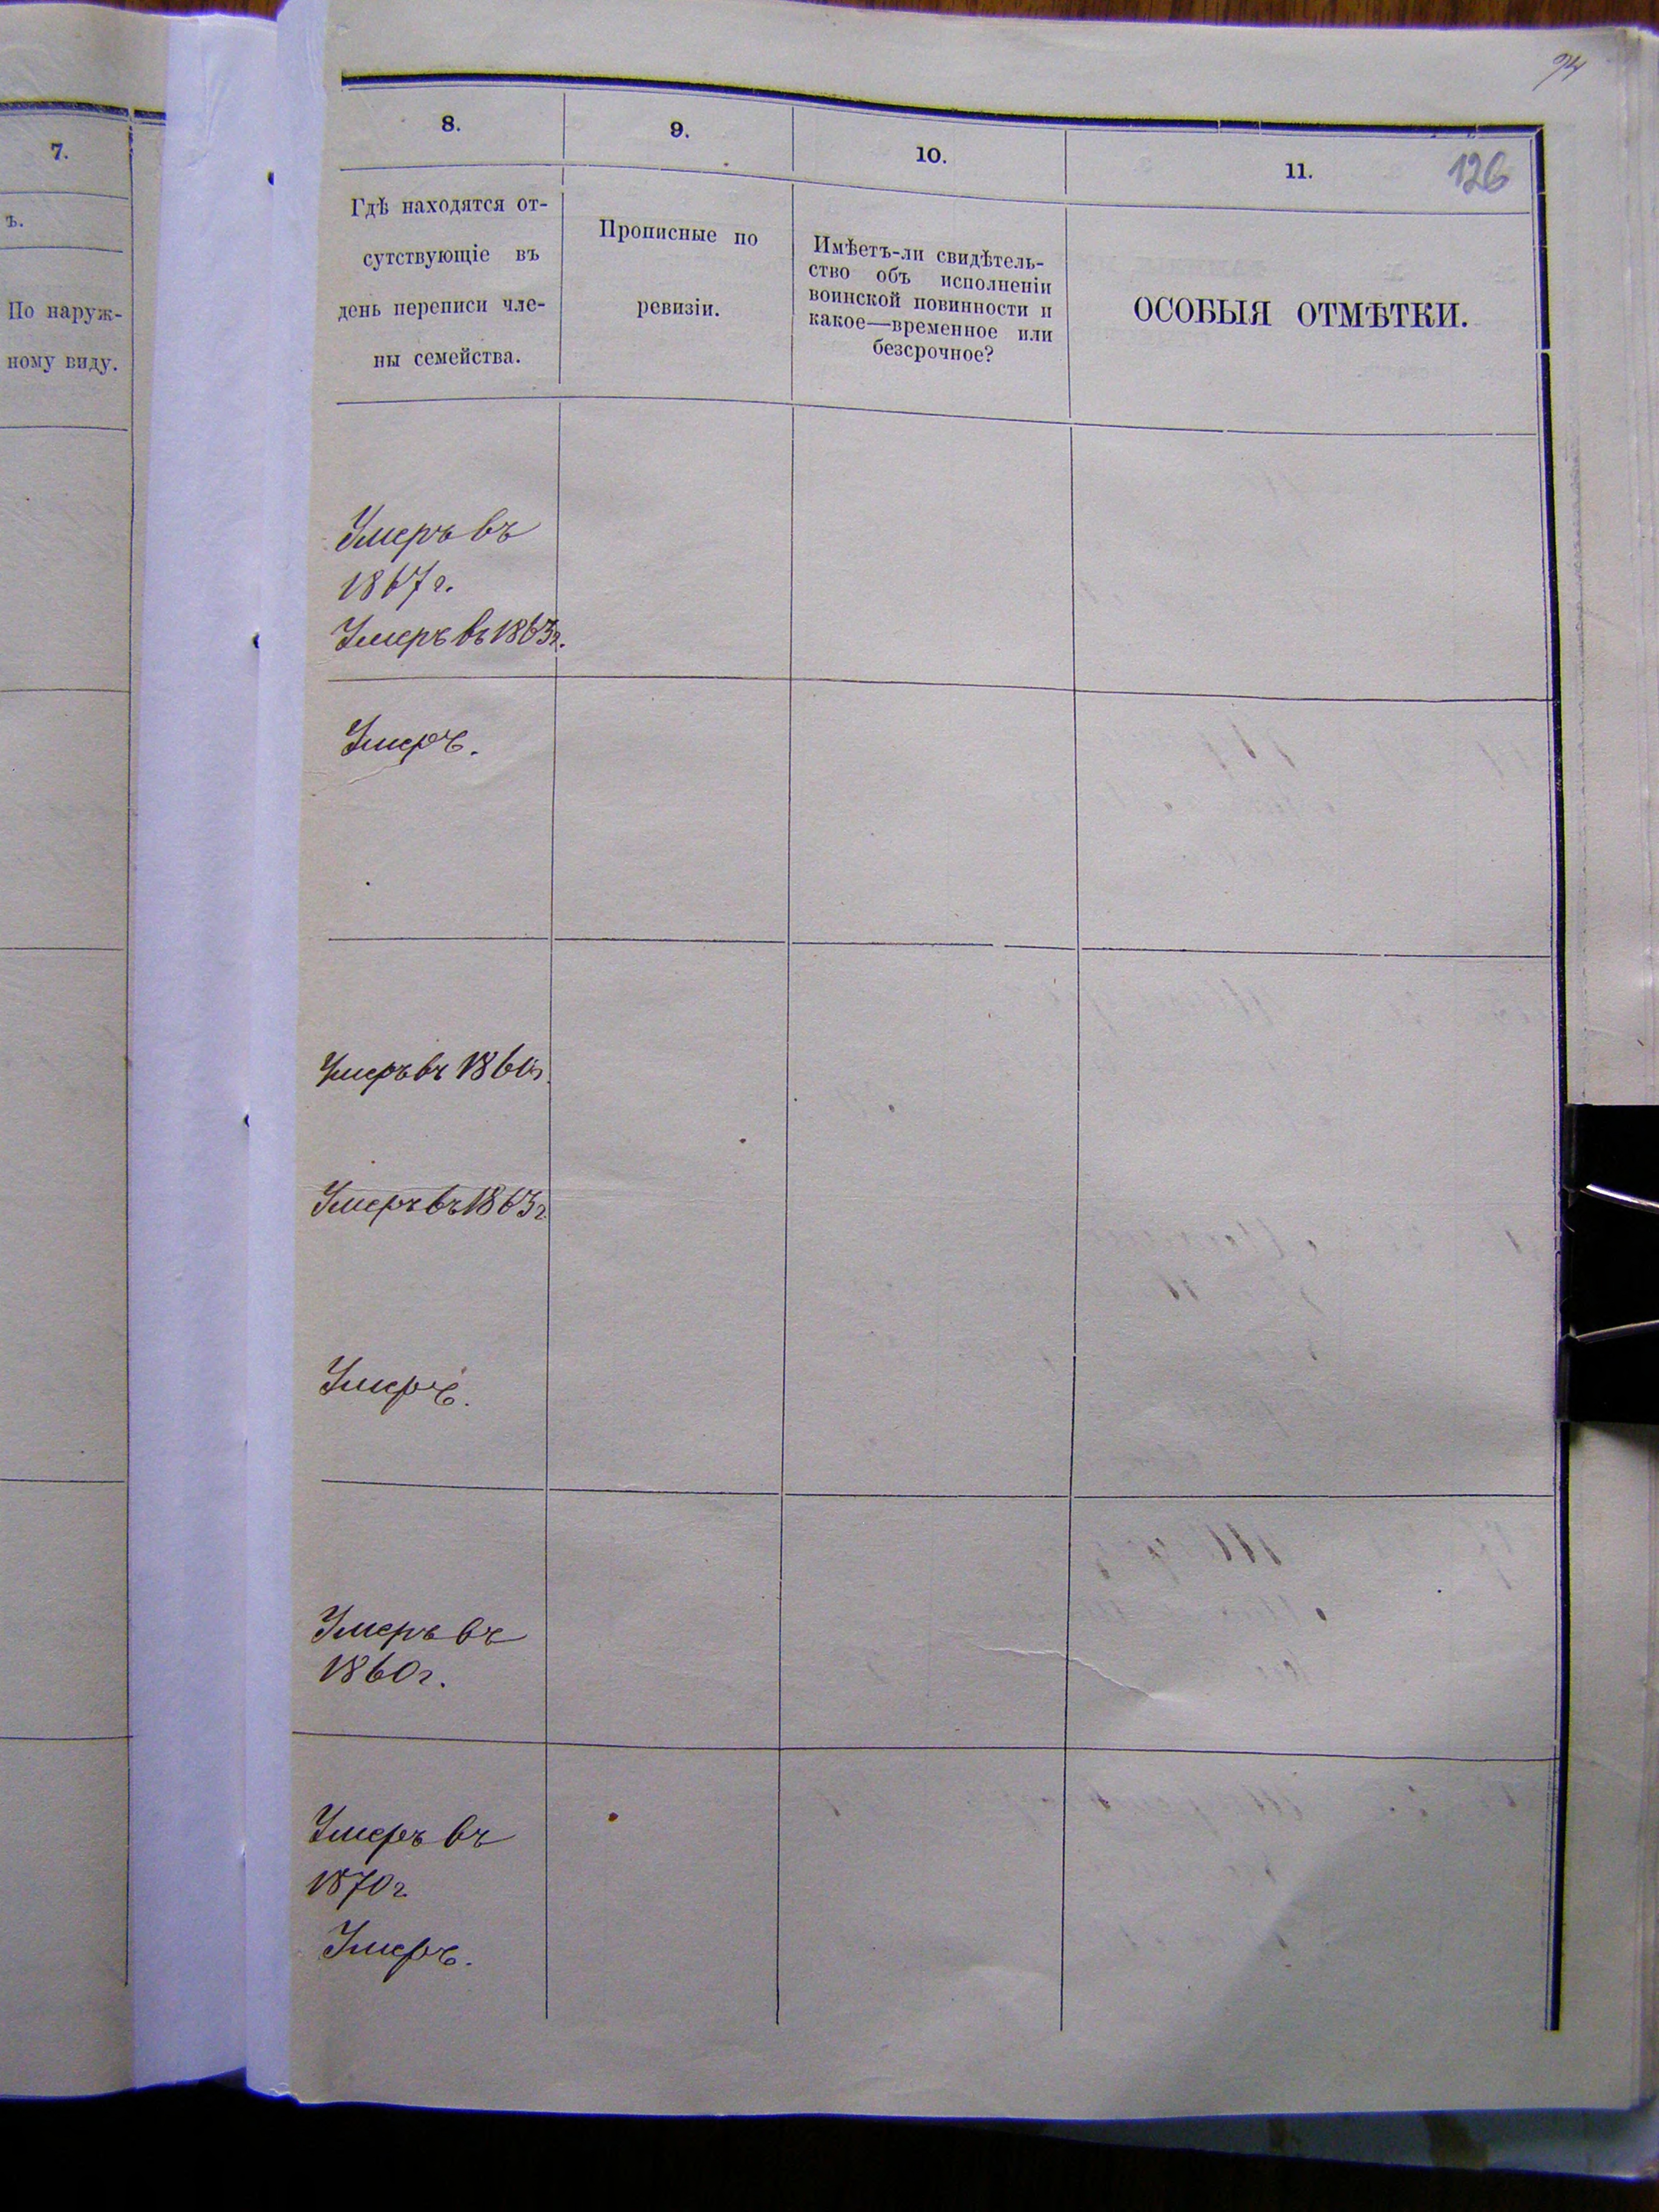 7.
ъ.
По наруж-
ному виду.
126
8.
9.
10.
11.
Гдѣ находятся от-
сутствующіе въ
день переписи чле-
ны семейства.
Прописные по
ревизіи.
Имѣетъ-ли свидѣтель-
ство объ исполненіи
воинской повинности и
какое—временное или
безсрочное?
ОСОБЫЯ ОТМѢТКИ.
Умеръ въ
1867 г.
Умеръ въ 1863 г.
Умеръ.
Умеръ въ
Умеръ въ 1863 г.
Умеръ.
Умеръ въ
1860 г.
Умеръ въ
1870 г.
Умеръ.